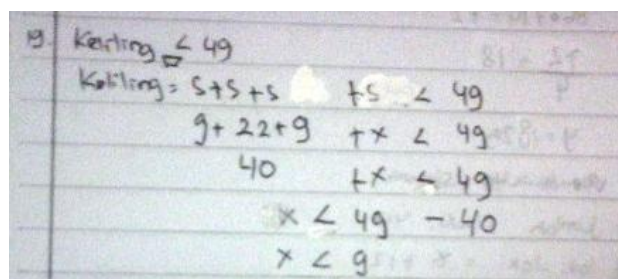 19. Keliling ▱ < 49
Keliling = s + s + s + s < 49
9 + 22 + 9 + x < 49
40 + x < 49
x < 49 - 40
x < 9